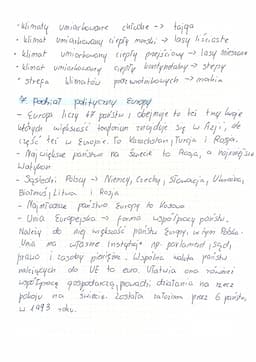 • klimaty umiarkowane chłodne → tajga
• klimat umiarkowany ciepły morski → lasy liściaste
• klimat umiarkowany ciepły przejściowy → lasy mieszane
• klimat umiarkowany ciepły kontynentalny → stepy
• strefa klimatów podzwrotnikowych → makia
7. Podział polityczny Europy
- Europa liczy 47 państw i obejmuje to też trzy kraje
których większość terytorium znajduje się w Azji, ale
część też w Europie. To Kazachstan, Turcja i Rosja.
- Największe państwo na świecie to Rosja, a najmniejsze
Watykan
- Sąsiedzi Polski → Niemcy, Czechy, Słowacja, Ukraina,
Białoruś, Litwa i Rosja
- Najmłodsze państwo Europy to Kosowo
- Unia Europejska → forma współpracy państw.
Należy do niej większość państw Europy, w tym Polska.
Unia ma własne instytucje np. parlament, sąd,
prawo i zasoby pieniężne. Wspólna waluta państw
należących do UE to euro. Ułatwia ona również
współpracę gospodarczą, prowadzi działania na rzecz
pokoju na świecie. Została założona przez 6 państw
w 1993 roku.